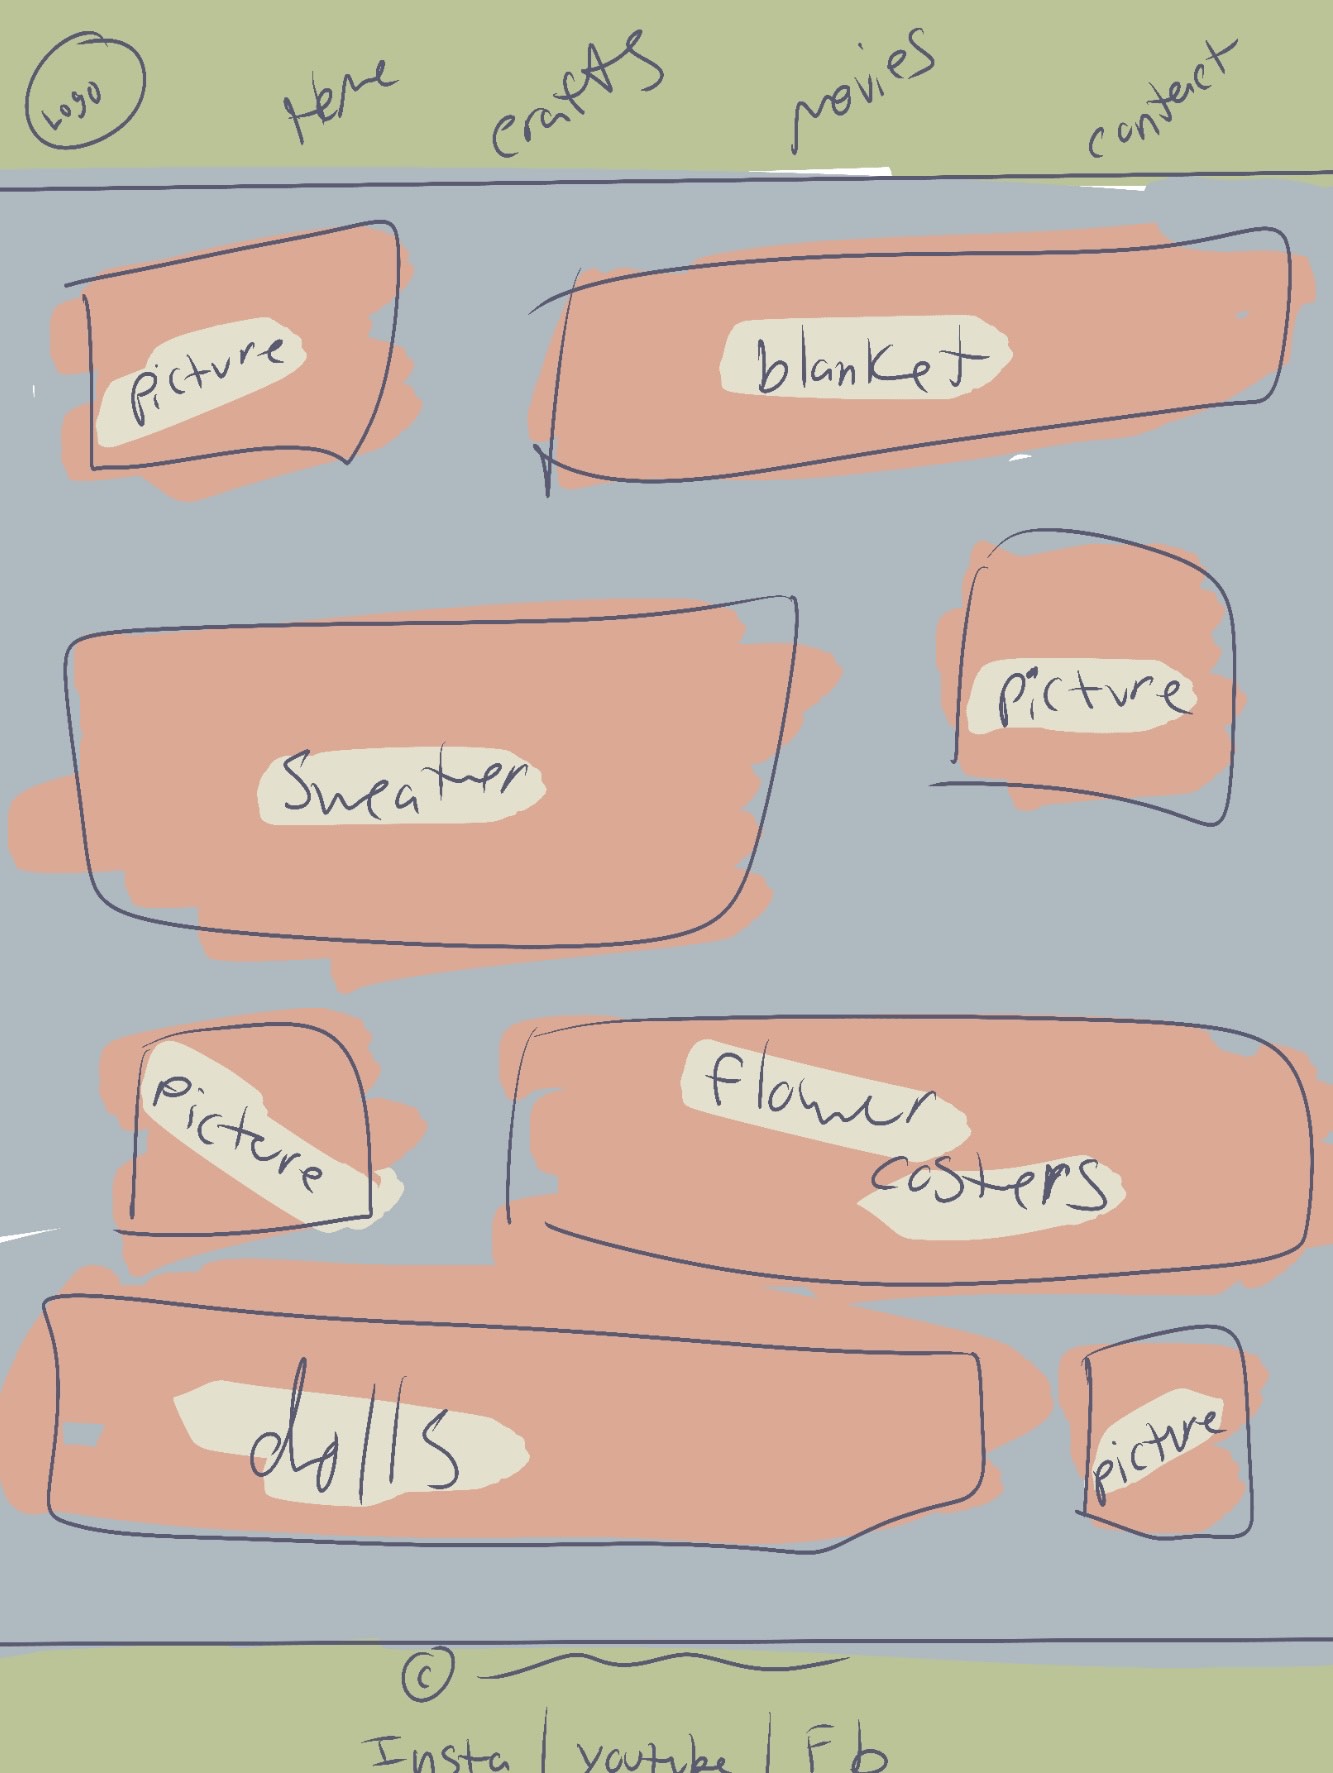 Logo Home crafts movies contact
picture blanket
Sweater picture
picture flower
costers
dolls picture
©
Insta | youtube | Fb